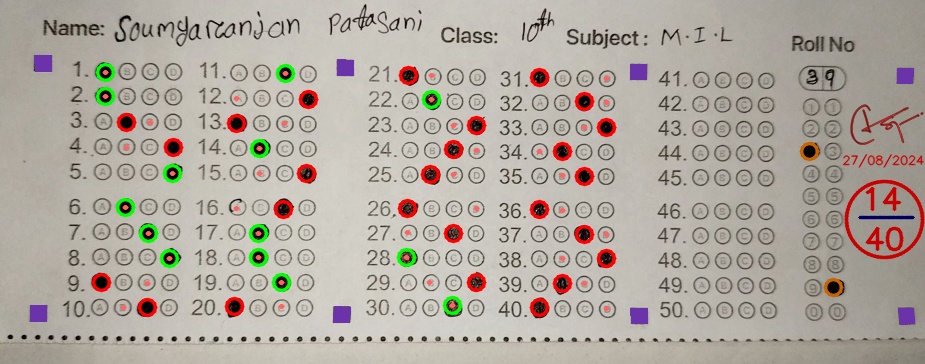 Name: Soumyaranjan Patasani Class: 10th Subject: M.I.L
Roll No
39
27/08/2024
14
40
1. A B C D
2. A B C D
3. A B C D
4. A B C D
5. A B C D
6. A B C D
7. A B C D
8. A B C D
9. A B C D
10. A B C D
11. A B C D
12. A B C D
13. A B C D
14. A B C D
15. A B C D
16. A B C D
17. A B C D
18. A B C D
19. A B C D
20. A B C D
21. A B C D
22. A B C D
23. A B C D
24. A B C D
25. A B C D
26. A B C D
27. A B C D
28. A B C D
29. A B C D
30. A B C D
31. A B C D
32. A B C D
33. A B C D
34. A B C D
35. A B C D
36. A B C D
37. A B C D
38. A B C D
39. A B C D
40. A B C D
41. A B C D
42. A B C D
43. A B C D
44. A B C D
45. A B C D
46. A B C D
47. A B C D
48. A B C D
49. A B C D
50. A B C D
1 1
2 2
3
4 4
5 5
6 6
7 7
8 8
9
0 0